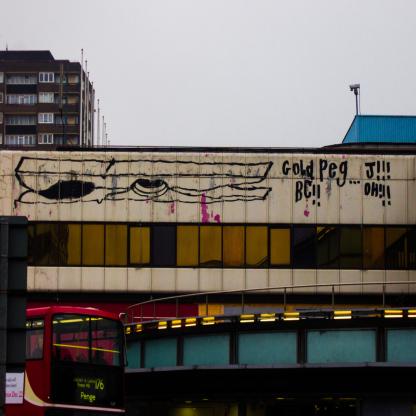 Gold Peg ... J!!!
BC!! OH!!
176
Penge